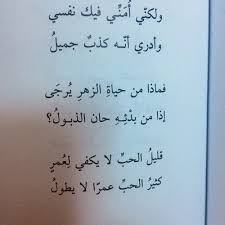 ولكنّي أُمَنّي فيك نفسي
وأدري أنّه كذبٌ جميلُ
فماذا من حياةِ الزهرِ يُرجَى
إذا من بدْئِهِ حان الذبولُ؟
قليلُ الحبِّ لا يكفي لِعُمرٍ
كثيرُ الحبِّ عمرًا لا يطولُ